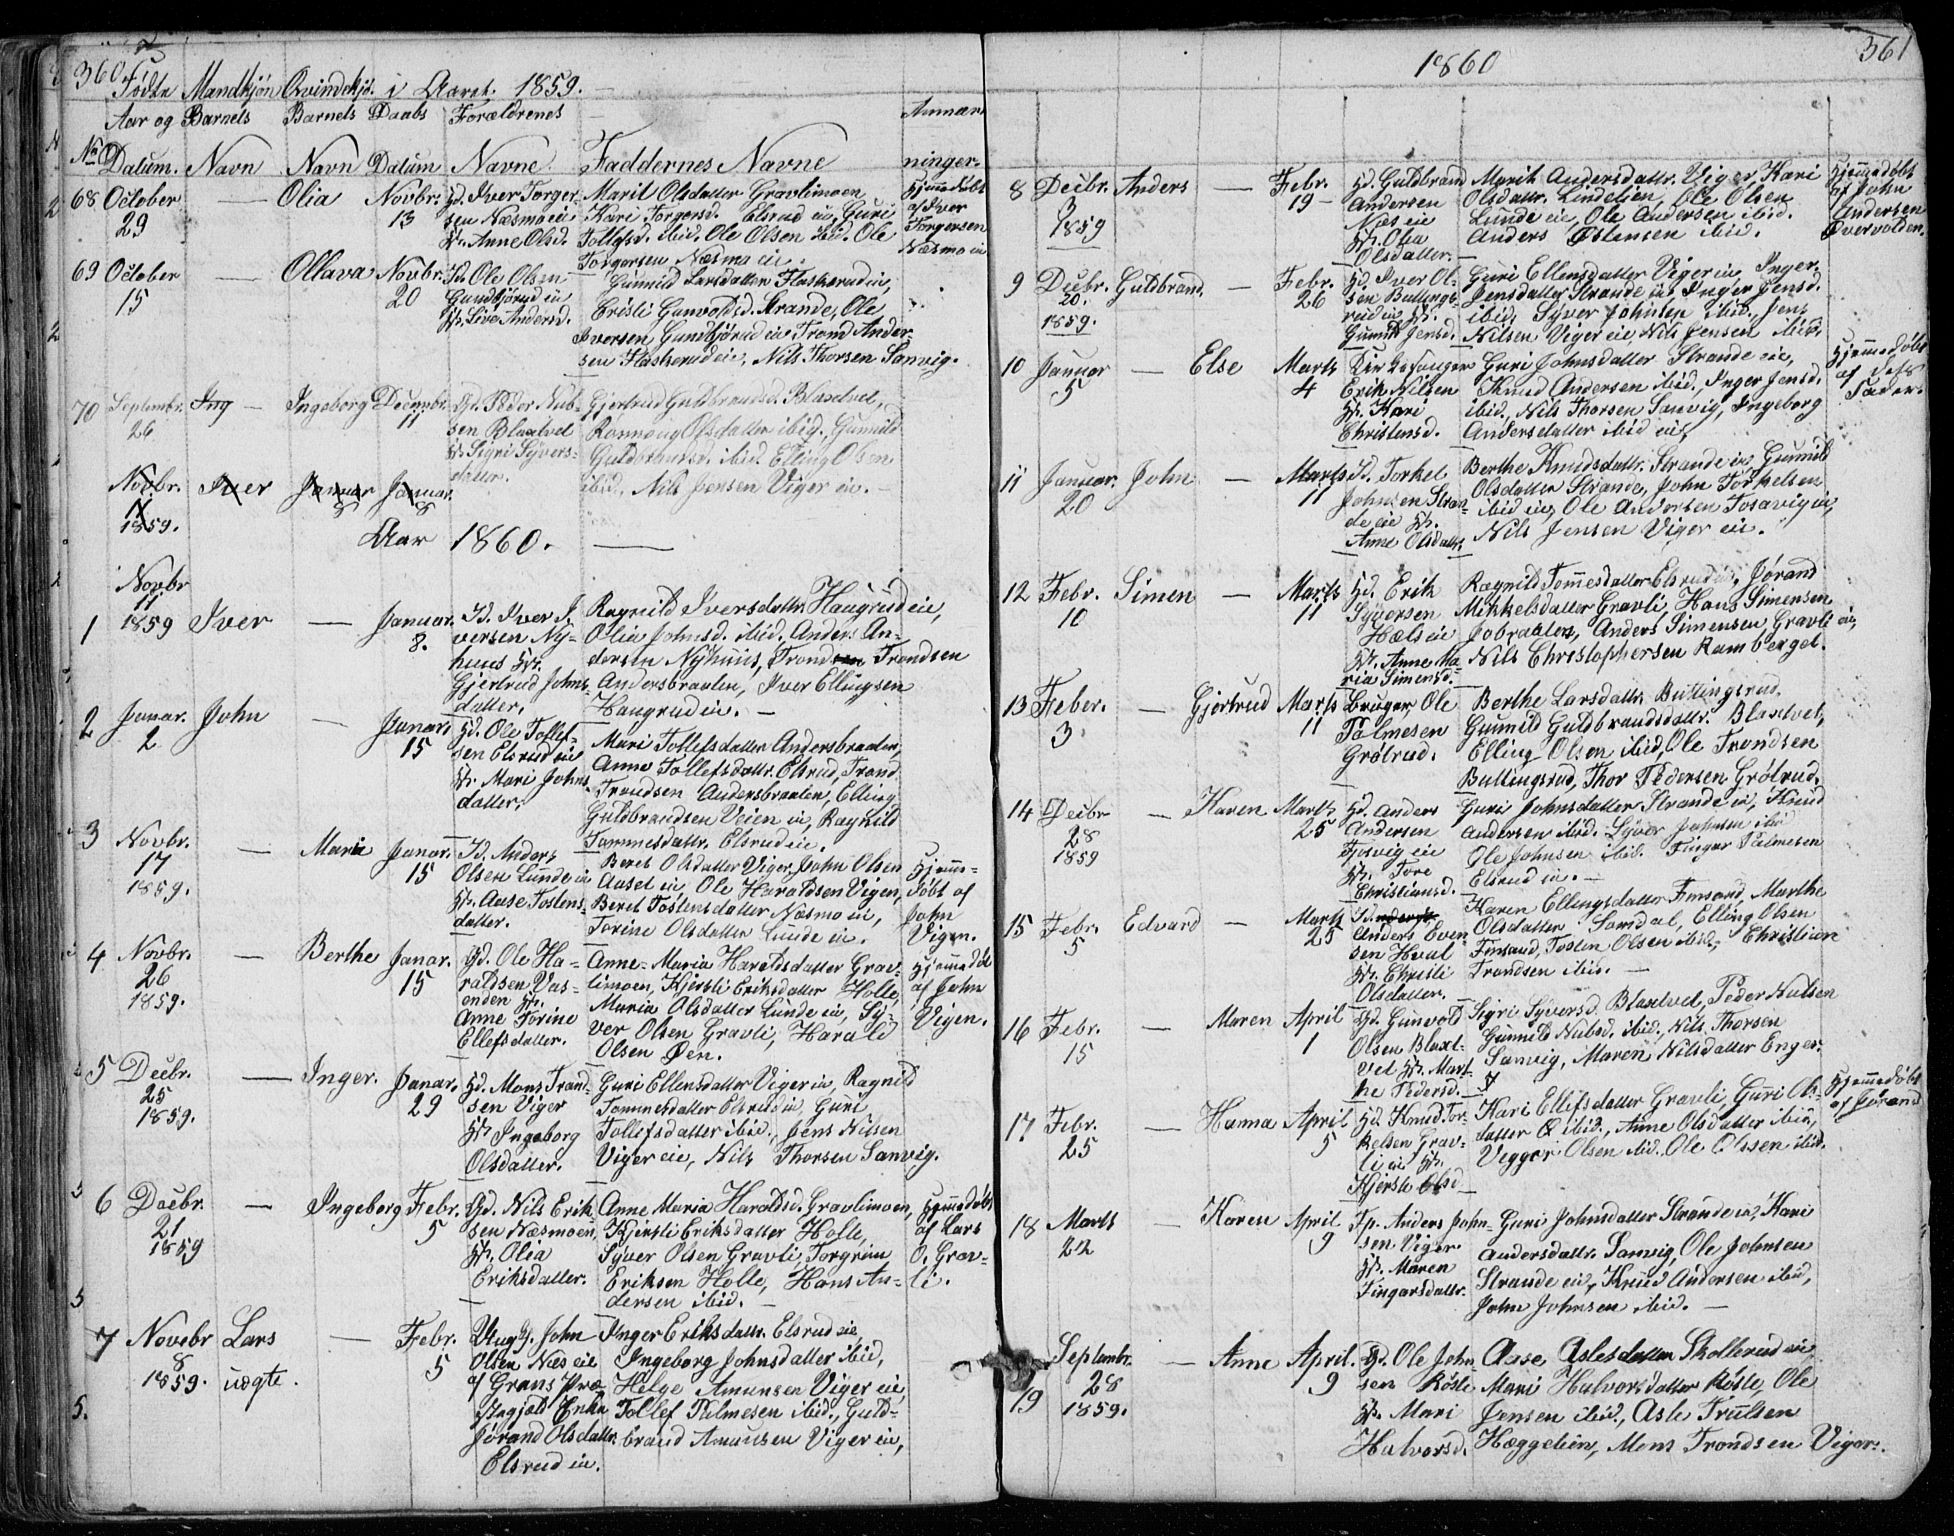 360
Fødte Mandkjøn Qvindekjø. i Aaret. 1859.
Aar og Barnets Barnets Daabs Forældrenes Anmær
No Datum. Navn Navn Datum Navne Faddernes Navne ninger.
68 October 29 — Olia Novbr. 13
Gd. Iver Torger-
sen Næsmo eie
Hr. Anne Olsd.
Marit Olsdatter Gravlimoen,
Kari Torgersd. Elsrud eie, Guri
Tollefsd. ibid. Ole Olsen ibid. Ole
Torgersen Næsmo eie.
Hjemedøbt
af Iver
Torgersen
Næsmo eie
69 October 15 — Ollava Novbr. 20
Id. Ole Olsen
Gundbjørud eie
Hr. Live Andersd.
Gunnild Larsdatter Flaskerud eie,
Cristi Gunvoldsd. Strande, Ole
Iversen Gundbjørud eie Trond Ander-
sen Flaskerud eie, Nils Thorsen Sanvig.
70 Septembr. 26 Ing — Ingeborg Decembr. 11
Gd. Peder Nub-
sen Blaxtvet
Hr. Sigri Syvers-
datter.
Gjertrud Guldbrandsd. Blaxtvet,
Rannoug Olsdatter ibid. Gunnild
Guldbrandsd. ibid. Elling Olsen
ibid. Nils Jensen Viger eie. —
Novbr. 11 1859. Iver Januar 8 Januar. 8
Aar 1860. —
1 Novbr 11 1859 Iver — Januar. 8.
Id. Iver I-
versen Ny-
huus Hr.
Gjertrud Johns
datter.
Ragnild Iversdattr. Haugrud eie,
Olia Johnsd. ibid. Anders An-
dersen Nyhuus, Trondsen Trondsen
Andersbraaten, Iver Ellingsen
Haugrud eie. —
2 Januar. 2 John — Januar. 15
Gd. Ole Tollef-
sen Elsrud eie
Hr. Mari Johns
datter.
Mari Tollefsdatter Andersbraaten,
Anne Tollefsdattr. Elsrud, Trond
Trondsen Andersbraaten, Elling
Guldbrandsen Veien eie, Ragnild
Tommesdattr. Elsrud eie.
3 Novbr. 17 1859. — Maria Januar. 15
Id. Anders
Olsen Lunde eie
Hr. Aase Tostens-
datter.
Beret Olsdatter Viger, John Olsen
Aaset eie, Ole Haraldsen Vigen,
Beret Tostensdatter Næsmo eie,
Torine Olsdatter Lunde eie.
Hjemme-
døbt af
John
Vigen.
4 Novbr. 26 1859. — Berthe Janar. 15
Gd. Ole Ha-
raldsen Vas-
enden Hr.
Anne Torine
Ellefsdatter.
Anne-Maria Haraldsdatter Grav-
limoen, Kjersti Eriksdatter Holte,
Maria Olsdatter Lunde eie, Sy-
ver Olsen Gravli, Harald
Olsen Øen.
Hjemmedøbt
af John
Vigen.
5 Decbr. 25 1859. — Inger. Janar. 29
Gd. Mons Trond-
sen Viger
Hr. Ingeborg
Olsdatter.
Guri Ellensdatter Viger eie, Ragnild
Tommesdatter Elsrud eie, Guri
Tollefsdatter ibid., Jens Nilsen
Viger eie, Nils Thorsen Sanvig.
6 Decbr. 21 1859 — Ingeborg Febr. 5
Gd. Nils Erik
sen Næsmoen,
Hr. Olia
Eriksdatter.
Anne Maria Haraldsd. Gravlimoen,
Kjersti Eriksdatter Holte,
Syver Olsen Gravli, Torgrim
Eriksen Holte, Hans An-
dersen ibid. —
Hjemedøbt
af Lars
O. Grav-
li.
7 Novebr 8 1859. Lars uægte. — Febr. 5
Ungg. John
Olsen Næs eie
af Grans Præ-
stegjeld Enke
Jørand Olsdattr.
Elsrud eie.
Inger Eriksdattr. Elsrud eie,
Ingeborg Johnsdatter ibid,
Helge Amunsen Viger eie,
Tollef Palmesen ibid., Guld-
brand Amunsen Viger eie,
361
1860
8 Decbr. 3 1859 Anders — Febr. 19 —
Gd. Guldbrand
Andersen
Næs eie
Hr. Olia
Olsdatter. —
Marit Andersdattr. Viger, Kari
Olsdatr. Lindelien, Ole Olsen
Lunde eie, Ole Andersen ibid.
Anders Østensen ibid.
Hjemedøbt
af John
Andersen
Overvolden.
9 Decbr. 20. 1859. Guldbrand. — Febr. 26
Gd. Iver Ol-
sen Buttings-
rud eie Hr.
Gunnild Jensd.
Guri Ellensdatter Viger eie, Inger
Jensdatter Strande eie Inger Jensd.
ibid. Syver Johnsen ibid., Jens
Nilsen Viger eie, Nils Jensen ibid.
10 Januar 5 — Else Marts 4
Erik Nilsen
Hr. Kari
Christensd.
Guri Johnsdatter Strande eie,
Knud Andersen ibid, Inger Jensd.
ibid., Nils Thorsen Sanvig, Ingeborg
Andersdatter ibid eie,
Hjemedøbt
af dets
Fader.
11 Januar. 20 John — Marts 11
Id. Torkel
Johnsen Stran-
de eie Hr.
Anne Olsdattr.
Berthe Knudsdattr. Strande eie, Gunnild
Olsdatter Strande, John Torkelsen
ibid eie, Ole Andersen Tosavig eie,
Nils Jensen Viger eie.
12 Febr. 10 Simen — Marts 11
Gd. Erik
Syversen
Hæls eie
Hr. Anne Ma-
ria Simensd.
Ragnild Tommesdatter Elsrud eie, Jørand
Mikkelsdatter Gravli, Hans Simensen
Jobraaten, Anders Simensen Gravli eie,
Nils Christophersen Ramberget.
13 Feber. 3 — Gjertrud Marts 11
Bruger, Ole
Palmesen
Grøtrud.
Berthe Larsdattr. Buttingsrud,
Gunnild Guldbrandsdattr. Blaxtvet,
Elling Olsen ibid, Ole Trondsen
Buttingsrud, Thor Pedersen Grøtrud.
14 Decbr 28 1859 — Karen Marts 25
Gd. Anders
Andersen
Tosvig eie
Hr. Tore
Christiansd.
Guri Johnsdatter Strande eie, Knud
Andersen ibid. Syver Johnsen ibid
Ole Johnsen ibid. Fingar Palmesen
Elsrud eie. —
15 Febr. 5 Edvard — Marts 25
Anders Even
sen Hval
Hr. Christi
Olsdatter.
Karen Ellingsdatter Finsand, Marthe
Olsdatter Somdal, Elling Olsen
Finsand, Tosten Olsen ibid., Christian
Trondsen ibid. —
16 Febr. 15 — Maren April 1
Gd. Gunvold
Olsen Blaxt-
vet Hr. Mart-
he Pedersd.
Sigri Syversd. Blaxtvet, Peder Nubsen
Gunnild Nubsd. ibid., Nils Thorsen
Sanvig, Maren Nilsdatter Enger.
17 Febr. 25 — Hanna April 5
Gd. Knud Tor-
kelsen Grav-
li eie Hr.
Kjersti Olsd —
Kari Ellefsdatter Gravli, Guri Ols-
datter Ø ibid., Anne Olsdatter ibid.,
Veggar Olsen ibid. Ole Olssen ibid.
Hjemmedøbt
af Jørand
18 Marts 22 — Karen April 9
Fp. Anders John-
sen Viger
Hr. Maren
Fingarsdattr.
Guri Johnsdatter Strande eie, Kari
Andersdattr. Sanvig, Ole Johnsen
Strande eie, Knud Andersen ibid,
John Johnsen ibid. —
19 Septembr. 28 1859. — Anne April. 9
Gd. Ole John-
sen Røsle
Hr. Mari
Halvorsd.
Aase Aslesdatter Skollerud eie
Mari Halvorsdatter Røsle, Ole
Jensen ibid., Asle Trulsen
Hæggelien, Mons Trondsen Viger.